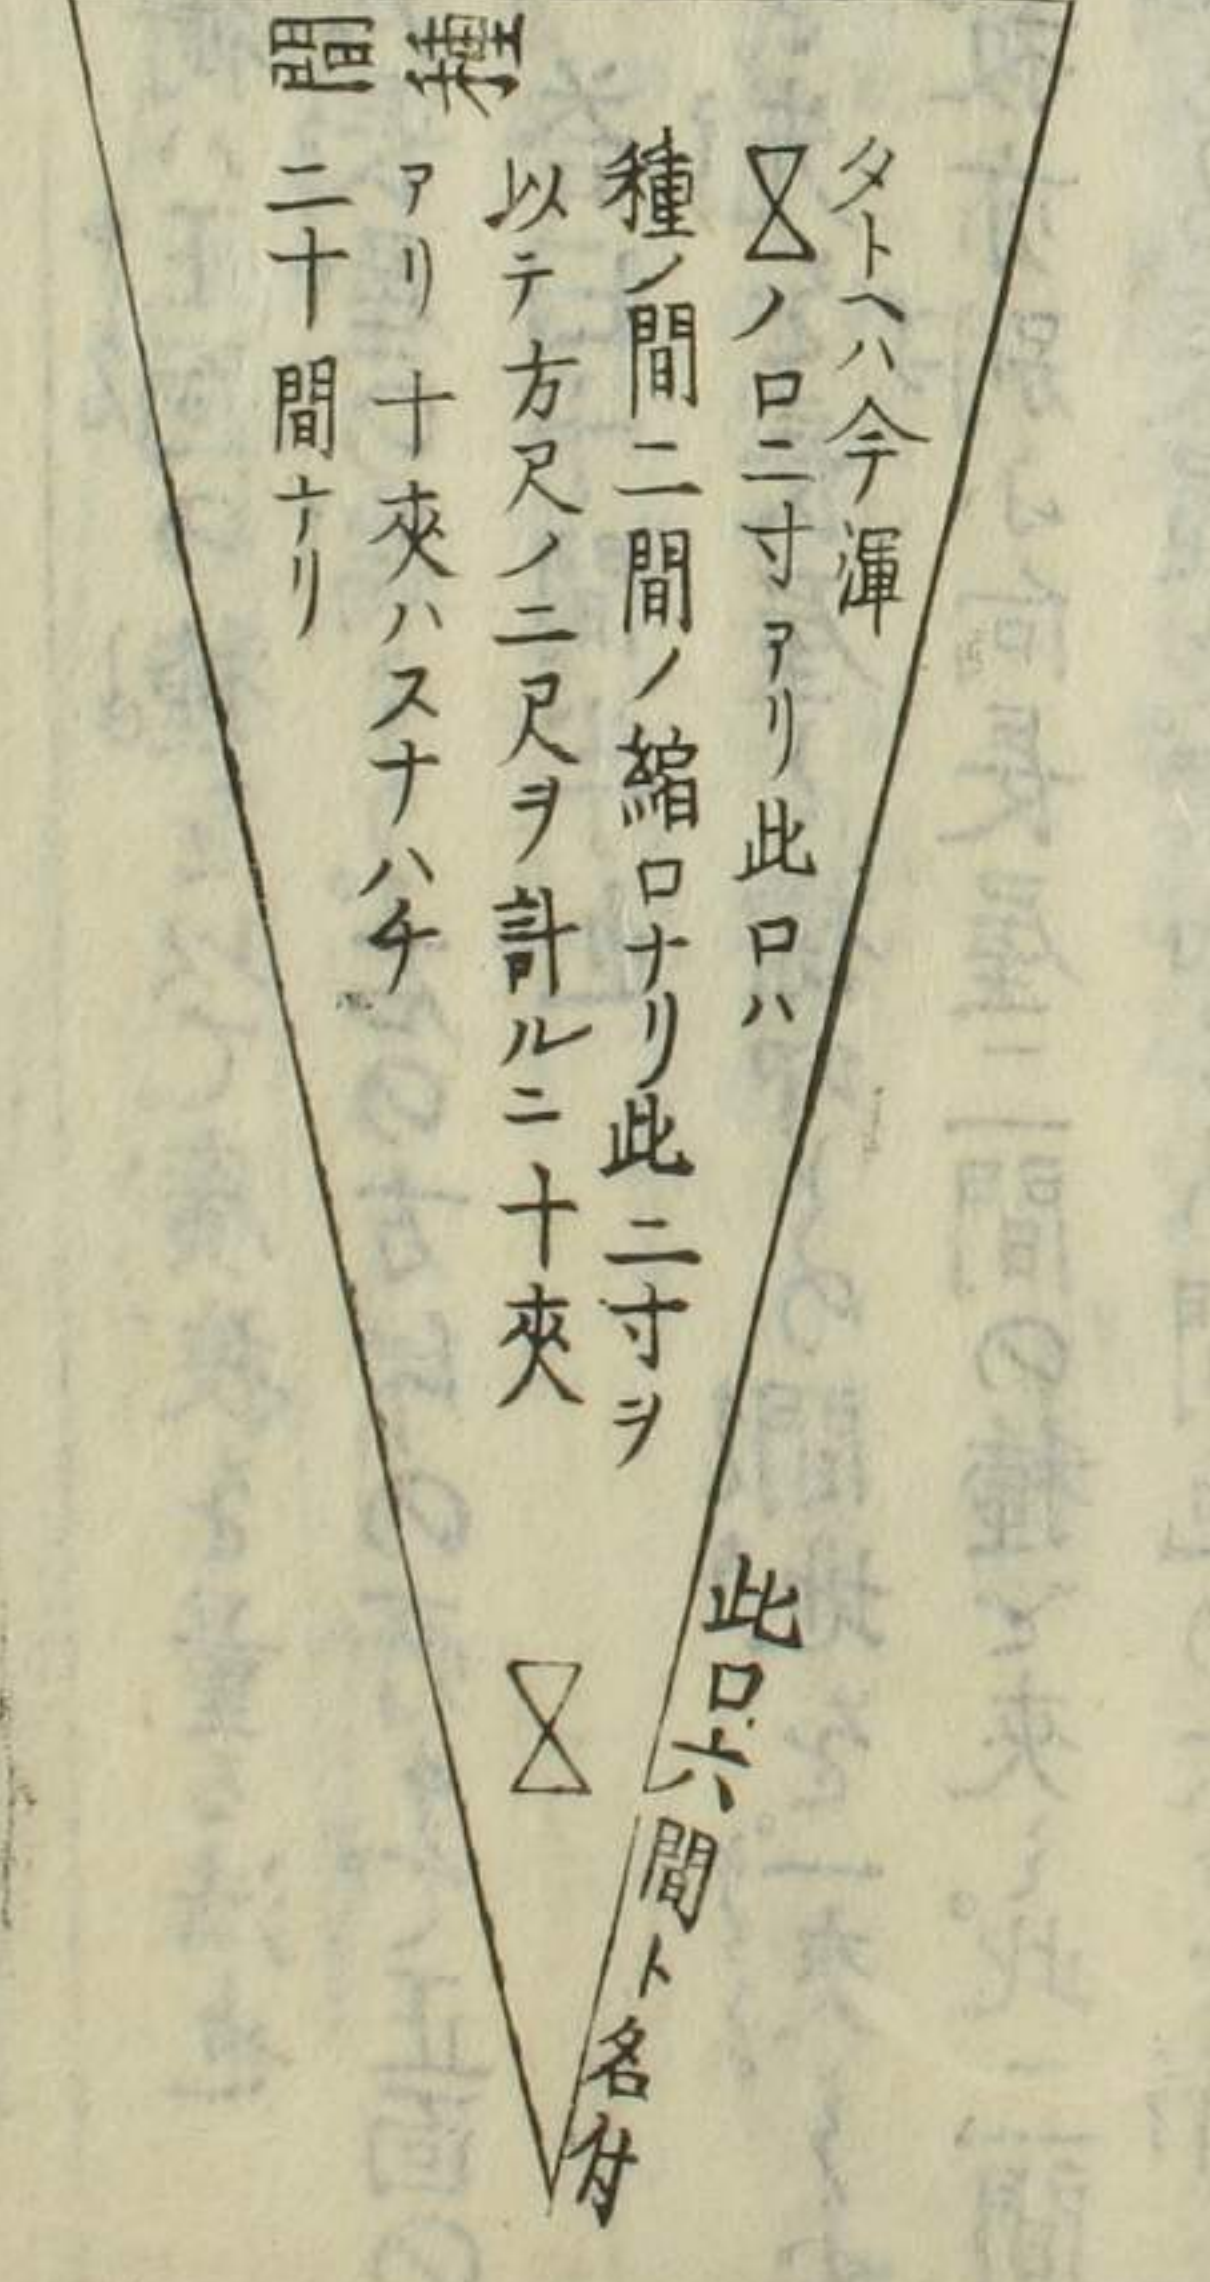 タトヘハ今渾
ノ口二寸アリ此口ハ
種ノ間二間ノ縮口ナリ此二寸ヲ
以テ方尺ノ二尺ヲ計ルニ十夾
アリ十夾ハスナハチ
二十間ナリ
種
間
此口六間ト名付